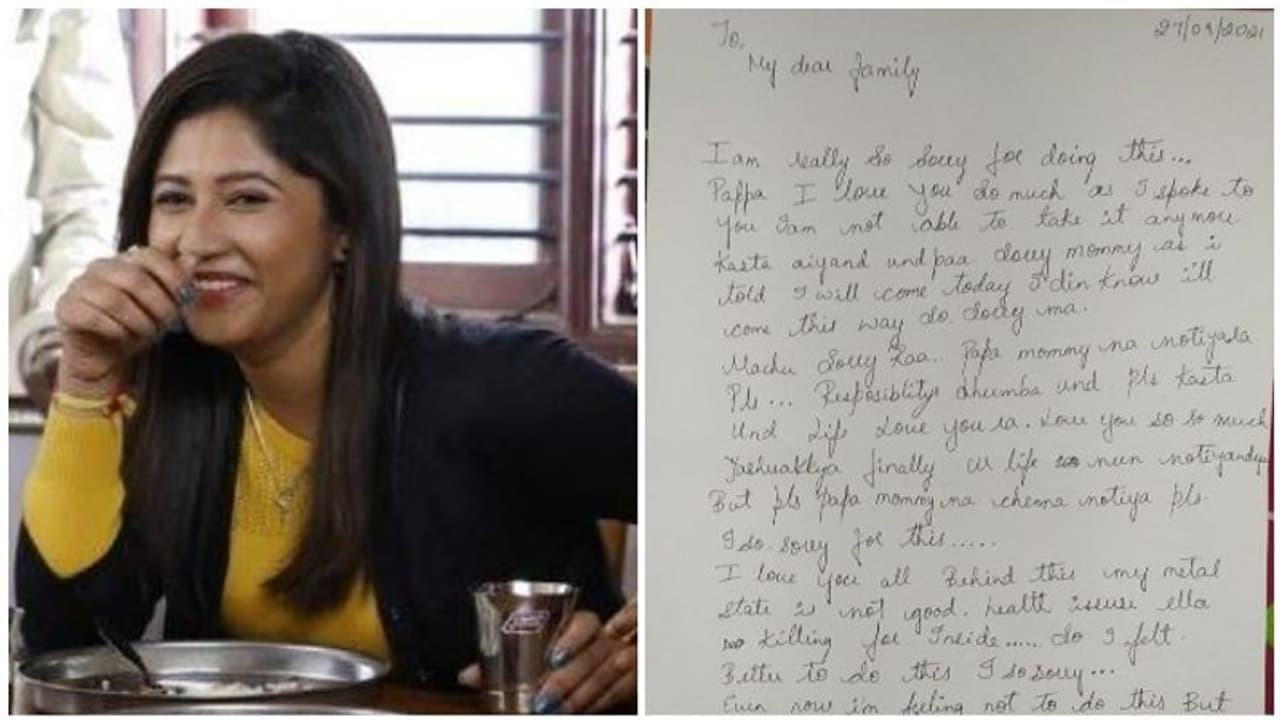 27/09/2021
To,
My dear family
I am really so sorry for doing this...
Pappa I love you so much as I spoke to
you I am not able to take it anymore
Kasta aiyand und paa sorry mommy as i
told I will come today I din know ill
come this way so sorry ma.
Machu Sorry Raa.. Papa mommy na notiyala
Pls... Resposiblitys dhumba und pls Kasta
Und Life Love you ra. Love you so so much
finally life neen notiyandya
But pls papa mommy na cheena notiya pls.
I so sorry for this.....
I love you all Behind this my metal
state is not good. health issuse ella
killing for Inside...... So I felt
Better to do this I so sorry...
Even now i'm feling not to do this But